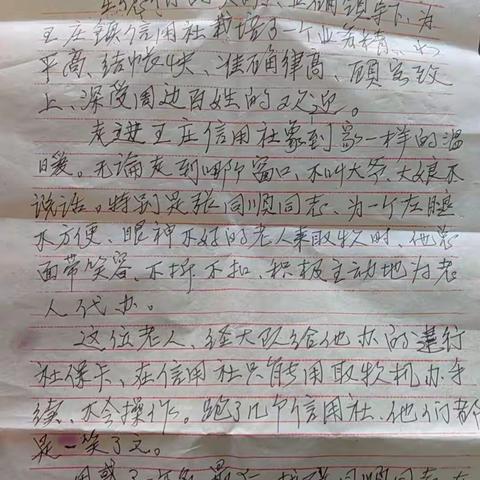 正确领导下,为
王庄镇信用社栽培了一个业务精、水
平高、结帐快、准确律高、顾客致
上、深受周边百姓的欢迎。
走进王庄信用社象到家一样的温
暖。无论走到哪个窗口,不叫大爷、大娘不
说话。特别是张同顺同志、为一个左腿
不方便、眼神不好的老人来取钱时、他总
面带笑容、不折不扣、积极主动地为老
人代办。
这位老人、经大队给他办的建行
社保卡、在信用社只能用取款机办手
续、不会操作。跑了几个信用社、他们都
是一笑了之。